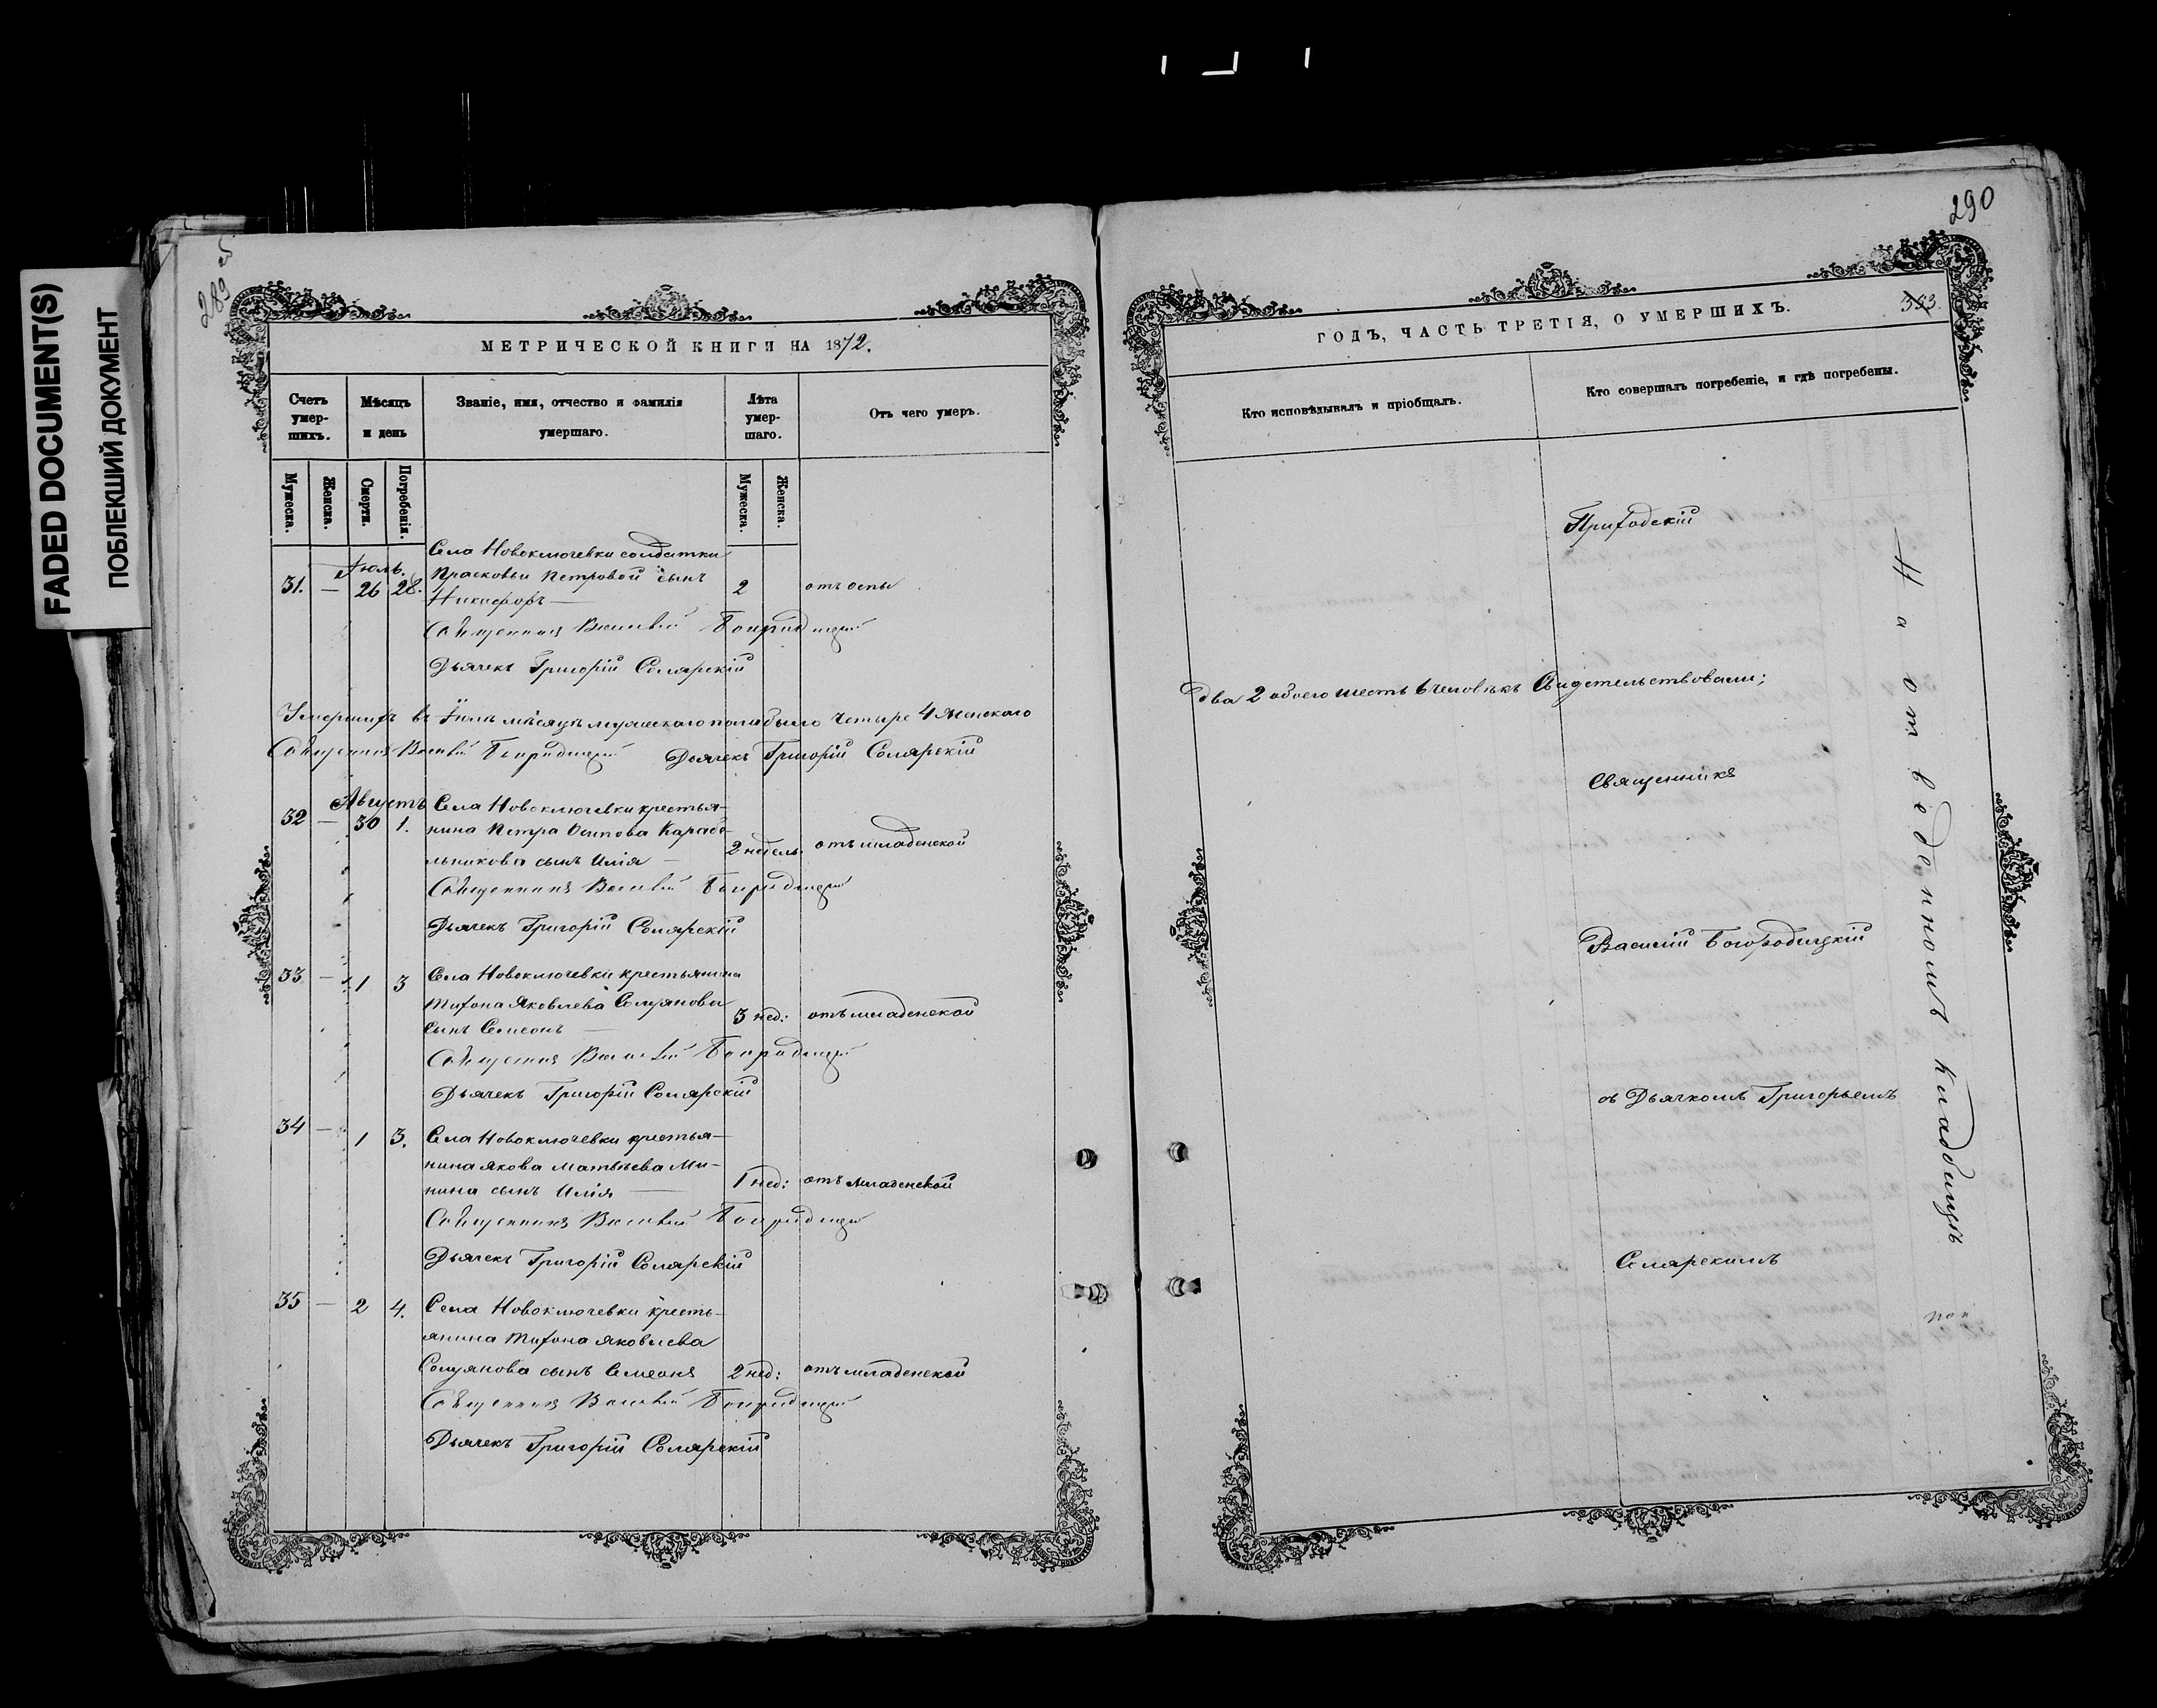 FADED DOCUMENT(S)
ПОБЛЕКШИЙ ДОКУМЕНТ
289 об
МЕТРИЧЕСКОЙ КНИГИ НА 1872.
Счетъ умер-шихъ.
Мѣсяцъ и день
Званіе, имя, отчество и фамилія умершаго.
Лѣта умер-шаго.
Отъ чего умеръ.
Мужеска.
Женска.
Смерти.
Погребенія.
Мужеска.
Женска.
Іюль.
Села Новоключевки солдатки
31. — 26 28. Прасковьи Петровой сынъ 2 отъ оспы
Никифоръ —
Священникъ Василій Богородицкій
Дьячекъ Григорій Солярскій
Умершихъ въ Іюлѣ мѣсяцѣ мужескаго пола было четыре 4 Женскаго
Священникъ Василій Богородицкій Дьячекъ Григорій Солярскій
Августъ
Села Новоключевки крестья-
32 — 30 1. нина Петра Осипова Карабе-
льникова сынъ Илія — 2 недель. отъ младенской
Священникъ Василій Богородицкій
Дьячекъ Григорій Солярскій
33 — 1 3 Села Новоключевки крестьянина
Тихона Яковлева
сынъ Симеонъ — 3 нед: отъ младенской
Священникъ Василій Богородицкій
Дьячекъ Григорій Солярскій
34 — 1 3. Села Новоключевки крестья-
нина Якова Матвѣева Ми-
нина сынъ Илія — 1 нед: отъ младенской
Священникъ Василій Богородицкій
Дьячекъ Григорій Солярскій
35 — 2 4. Села Новоключевки кресть-
янина Тихона Яковлева
сынъ Симеонъ 2 нед: отъ младенской
Священникъ Василій Богородицкій
Дьячекъ Григорій Солярскій
290
353.
ГОДЪ, ЧАСТЬ ТРЕТІЯ, О УМЕРШИХЪ.
Кто исповѣдывалъ и пріобщалъ.
Кто совершалъ погребеніе, и гдѣ погребены.
Приходскій
два 2 обоего шесть 6 человѣкъ Свидетельствовали;
Священникъ
Василій Богородицкій
съ Дьячкомъ Григорьемъ
Солярскимъ
На отведенномъ кладбищѣ